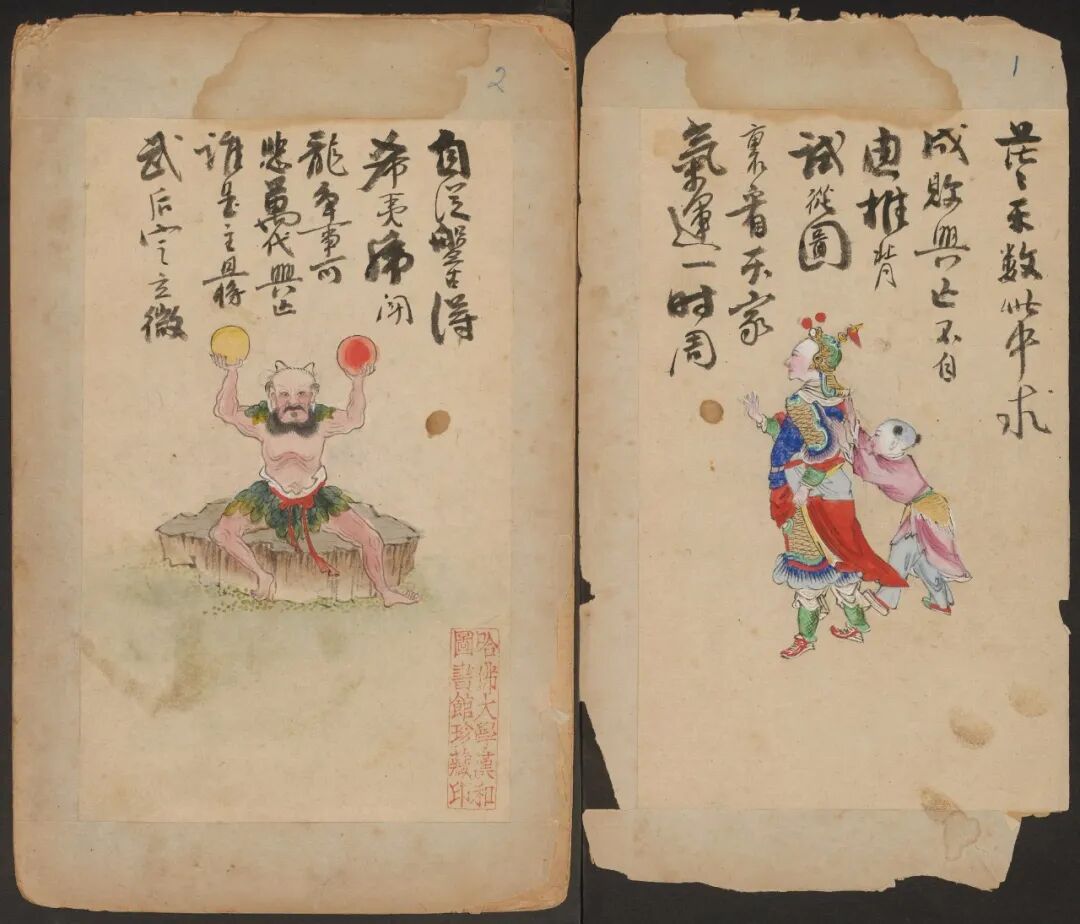 1
茫〻天数此中求
成敗興亡不自
由推背
試從圖
裏看天家
氣運一時周
2
自從盤古得
希夷虎鬪
龍争事可
悲萬代興亡
誰是主且將
武后定玄微
哈佛大學漢和
圖書館珍藏印